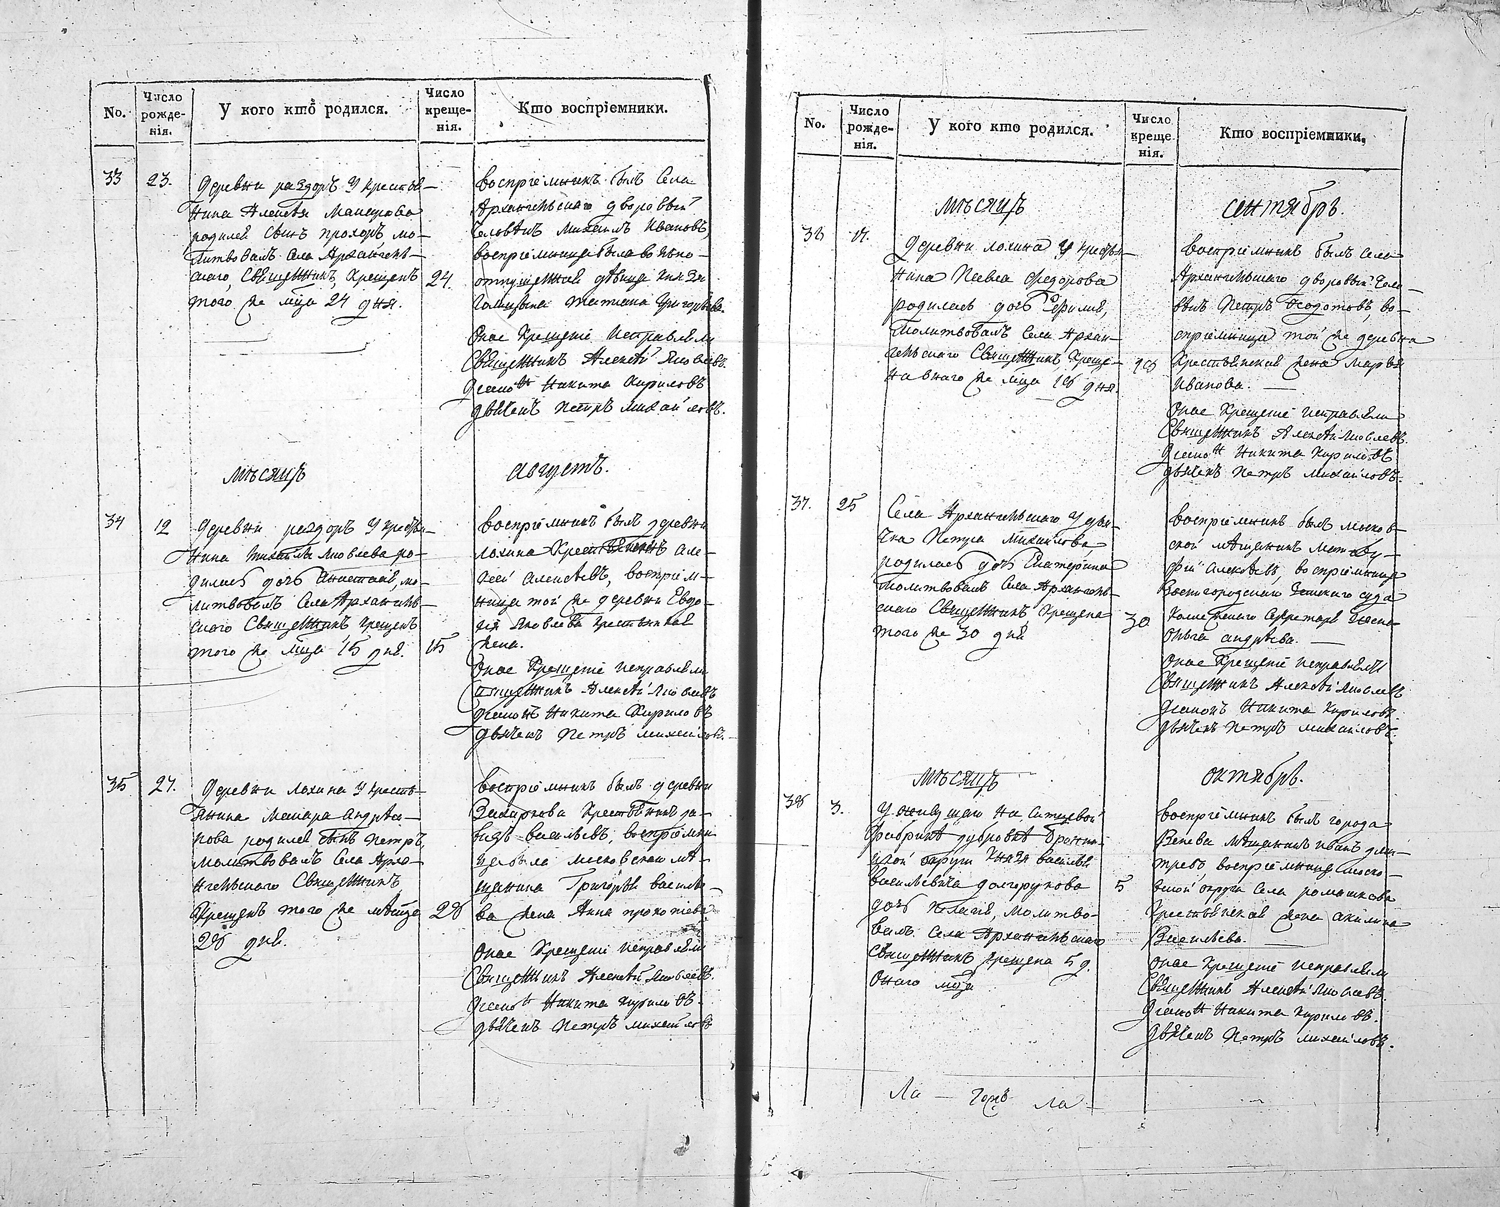 No.
Число рожде-нія.
У кого кто родился.
Число креще-нія.
Кто воспріемники.
33
23.
Деревни раздоръ у крестья-
нина Алексѣя
родился сынъ прохоръ мо-
литвовалъ села Архангель-
скаго, Священникъ, крещенъ
того же мца 24 дня.
24.
воспріемникъ былъ села
Архангельскаго дворовый
человѣкъ Михаилъ Ивановъ,
воспріемница была вольно-
отпущенная дѣвица князя
Голицына татьяна григорьева.
оное крещеніе исправляли
Священникъ Алексѣй Яковлевъ.
діаконъ Никита Кириловъ
дьячекъ Петръ михайловъ.
мѣсяцъ
августъ.
34
12
Деревни раздоръ у кресть-
нина Яковлева ро-
дилась дочь анастасія, мо-
литвовалъ села Архангель-
скаго Священникъ крещенъ
того же мца 15 дня.
15
воспріемникъ былъ деревни
лохина крестьянинъ але-
ксѣй алексѣевъ, воспріем-
ница той же деревни Евдо-
кія Яковлева крестьянская
жена.
оное крещеніе исправляли
священникъ Алексѣй Яковлевъ
діаконъ Никита Кириловъ
дьячекъ Петръ михайловъ.
35
27.
Деревни лохина у кресть-
янина макара андреа-
нова родился сынъ петръ,
молитвовалъ села Арха-
нгельскаго Священникъ
крещенъ того же мѣсяца
28 дня.
28
воспріемникъ былъ деревни
Захаркова крестьянинъ
васильевъ, воспріемни-
цей была московскаго мѣ-
щанина Григорья василье-
ва жена Анна прокофьева
оное крещеніе исправляли
Священникъ Алексѣй Яковлевъ.
діаконъ Никита Кириловъ.
дьячекъ Петръ михайловъ
No.
Число рожде-нія.
У кого кто родился.
Число креще-нія.
Кто воспріемники.
мѣсяцъ
сентябрь.
36
17.
Деревни лохина у кресть-
нина Павла Федорова
родилась дочь
молитвовалъ села Архан-
гельскаго Священникъ, креще-
на онаго же мца 18 дня.
18
воспріемникъ былъ села
Архангельскаго дворовый чело-
вѣкъ Петръ Ѳедотовъ, во-
спріемница той же деревни
крестьянская жена марья
Иванова.
оное крещеніе исправляли
Священникъ Алексѣй Яковлевъ.
діаконъ Никита Кириловъ
дьячекъ Петръ михайловъ.
37.
25
Села Архангельскаго у дья-
чка Петра михайлова
родилась дочь Екатерина
молитвовалъ села Арханге-
льскаго Священникъ крещена
того же 30 дня
30
воспріемникъ былъ москов-
ской мѣщанинъ
алексѣевъ, воспріемница
земскаго суда
секретаря
андрѣева.
оное крещеніе исправляли
Священникъ Алексѣй Яковлевъ
діаконъ Никита Кириловъ.
дьячекъ Петръ михайловъ.
мѣсяцъ
октябрь.
38
3.
У живущаго на ситцевой
фабрикѣ
округи князя василья
васильевича долгорукова
дочь пелагія, молитво-
валъ села Архангельскаго
священникъ крещена 5 д.
онаго мца
5
воспріемникъ былъ города
Венева мѣщанинъ иванъ дми-
тревъ воспріемница моско-
вской округи села ромашкова
крестьянская жена акилина
Васильева.
оное крещеніе исправляли
Священникъ Алексѣй Яковлевъ
діаконъ Никита Кириловъ.
дьячекъ Петръ михайловъ.